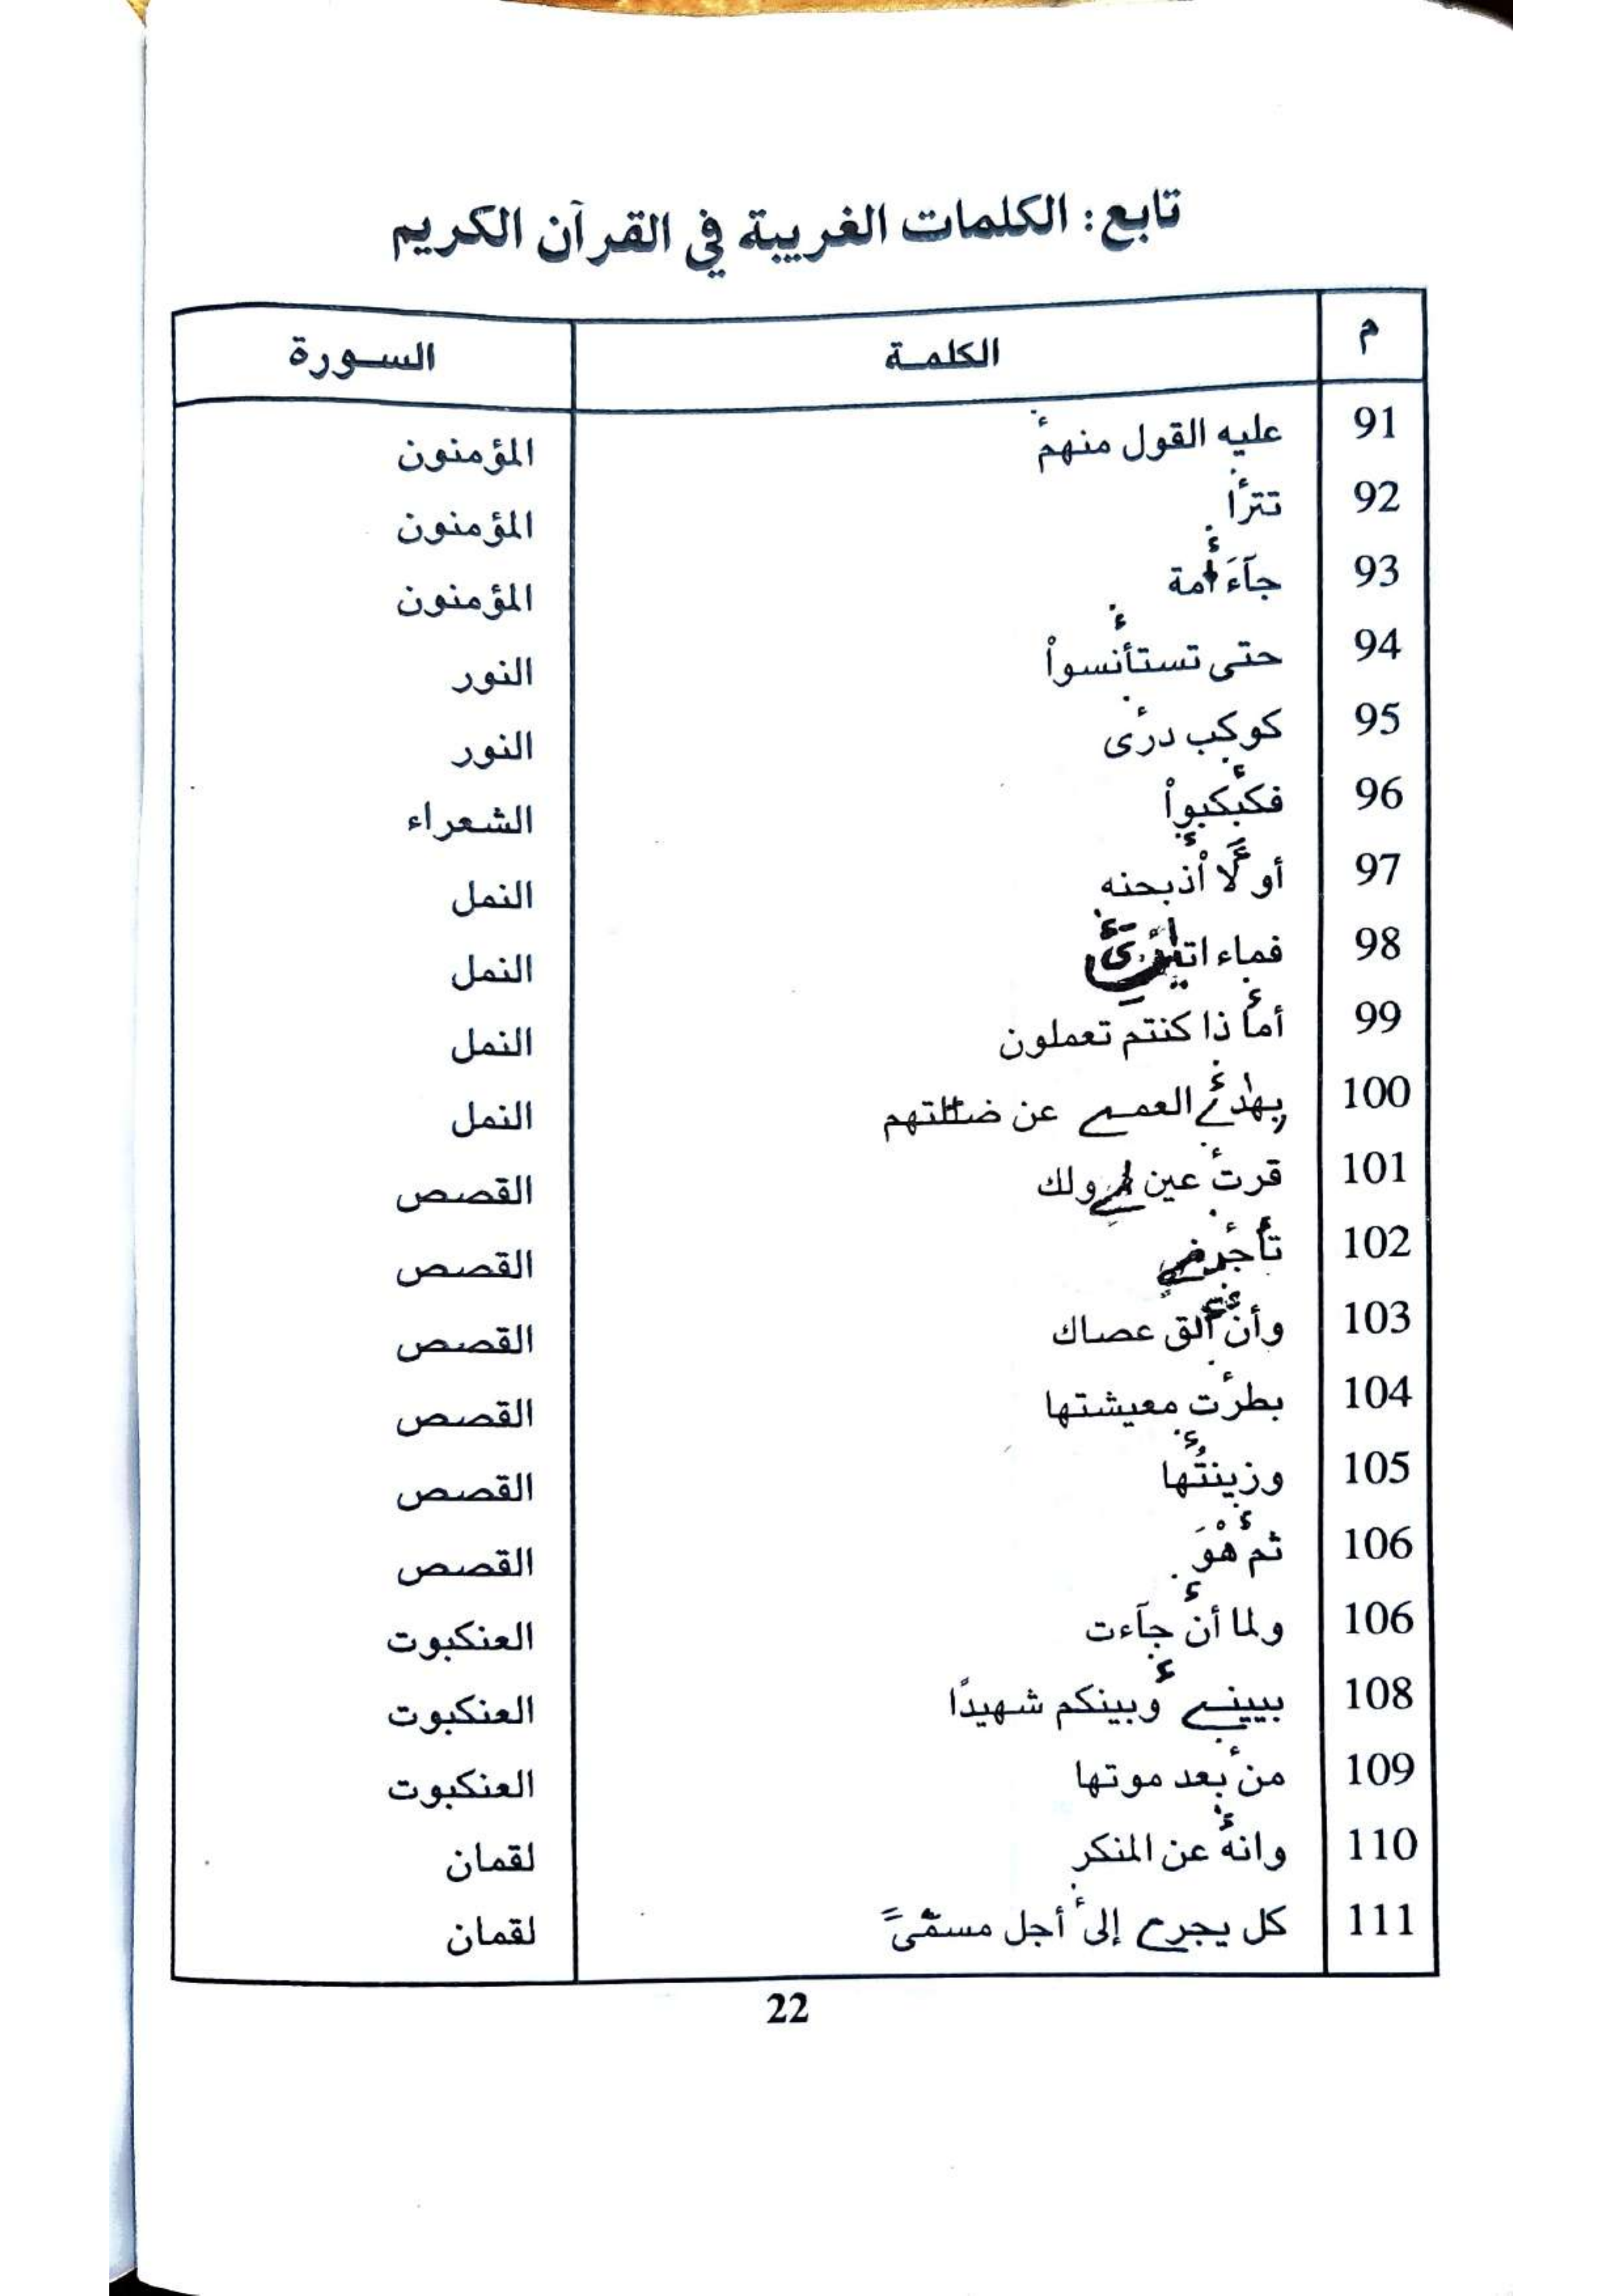 تابع: الكلمات الغريبة في القرآن الكريم
م الكلمـة السـورة
91 عليه القول منهم المؤمنون
92 تترأ المؤمنون
93 جآءَ أمة المؤمنون
94 حتى تستأنسواْ النور
95 كوكب درى النور
96 فكبكبواْ الشعراء
97 أو لَا اْذبحنه النمل
98 فماء اتىٰنِۦَ النمل
99 أما ذا كنتم تعملون النمل
100 بهٰدے العمے عن ضلٰلتهم النمل
101 قرت عين لے ولك القصص
102 تأجرنے القصص
103 وأن ألق عصاك القصص
104 بطرت معيشتها القصص
105 وزينتُها القصص
106 ثم هْوَ القصص
106 ولما أن جآءت العنكبوت
108 بيينے وبينكم شهيدًا العنكبوت
109 من بعد موتها العنكبوت
110 وانه عن المنكر لقمان
111 كل يجرے إلى أجل مسمًّى لقمان
22